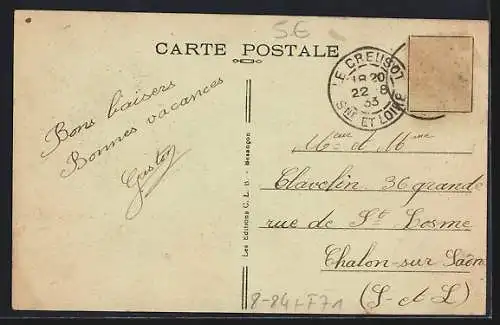 S.E
CARTE POSTALE
LE CREUSOT
18 20
22 - 8
33
SNE ET LOIRE
Bons baisers
Bonnes vacances
Gaston
Mr et Mme
Clavelin 36 grande
rue de St Cosme
Chalon-sur Saône
(S-et L)
Les Editions C. L. B. - Besançon
8-84+F71